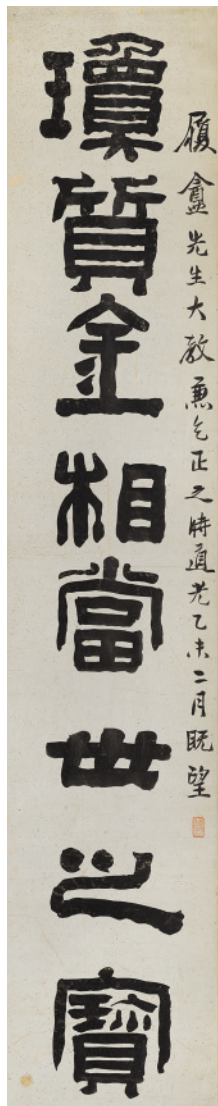 履盦先生大教兼乞正之時道光乙未二月既望
瓊質金相當世之寶